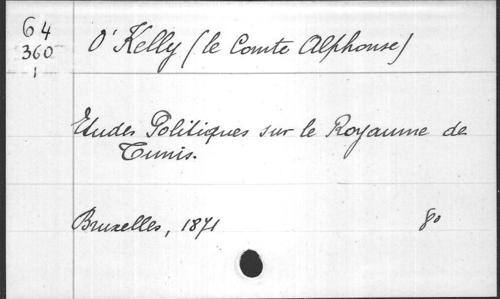 64
360
1
O'Kelly (le Comte Alphonse)
Etudes Politiques sur le Royaume de
Tunis.
Bruxelles, 1871
8o